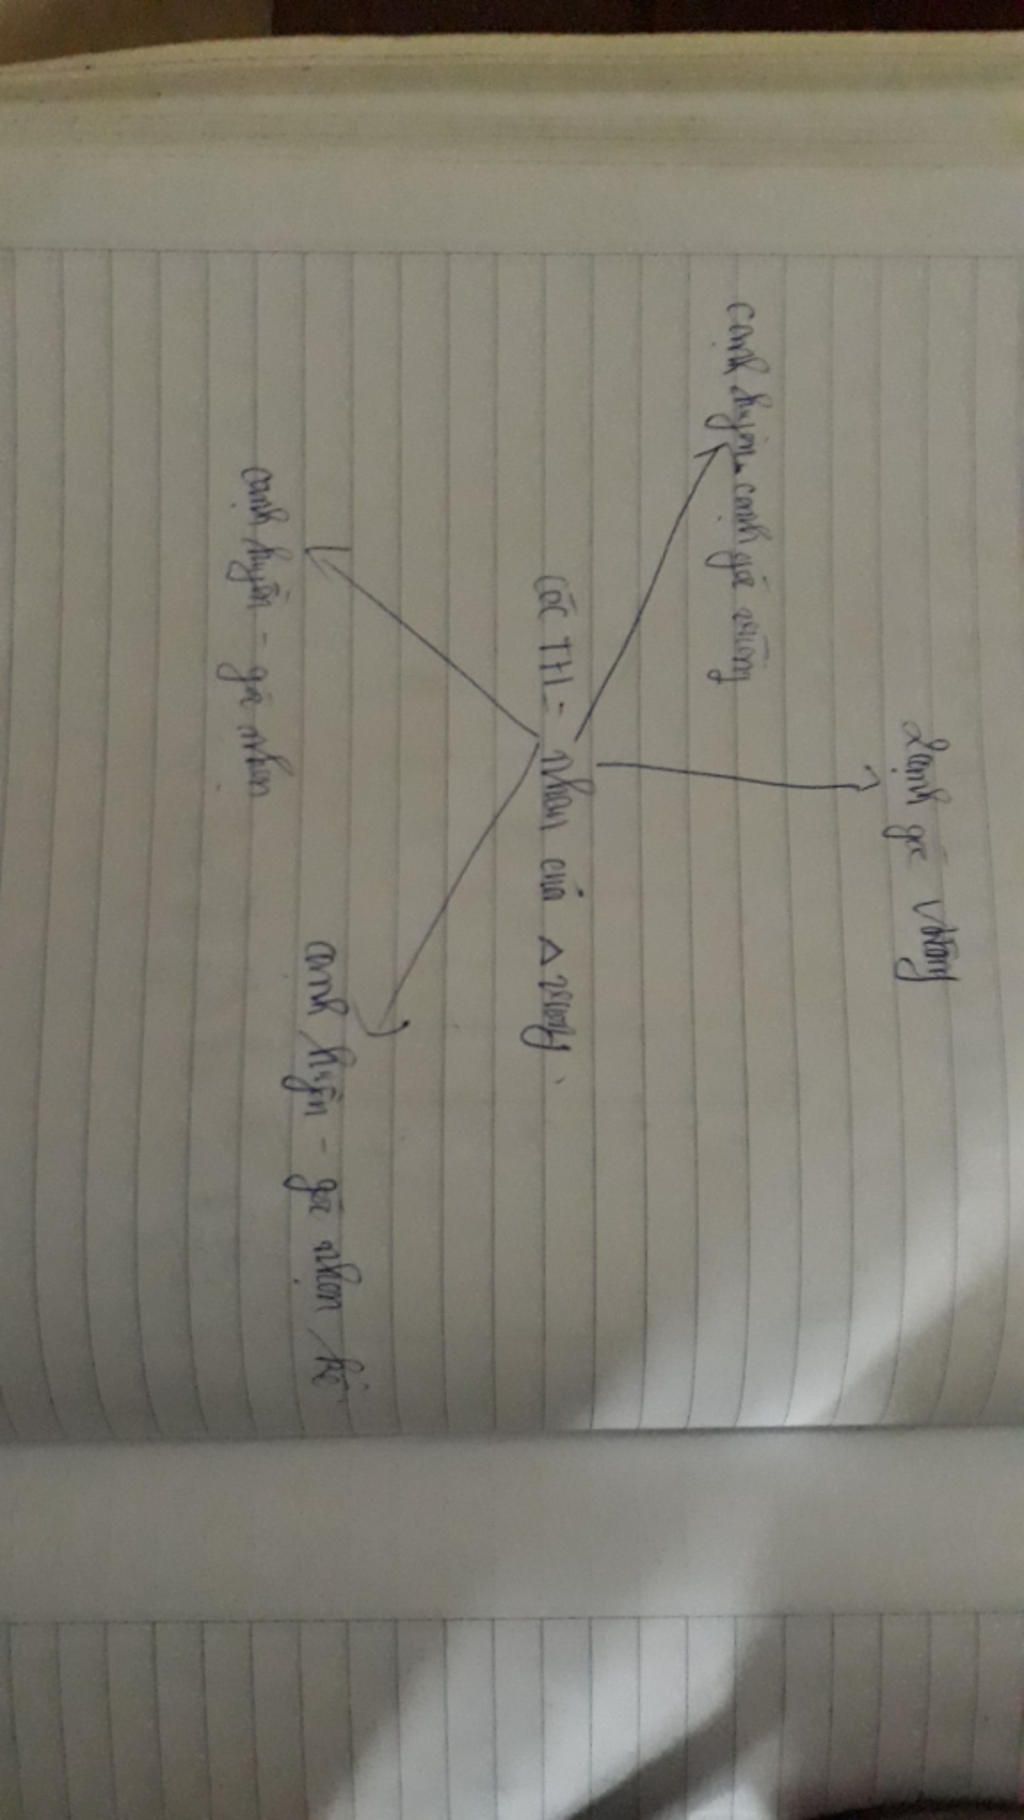 2 cạnh góc vuông
cạnh huyền - cạnh góc vuông
các TH = nhau của Δ vuông.
cạnh huyền - góc nhọn kề
cạnh huyền - góc nhọn